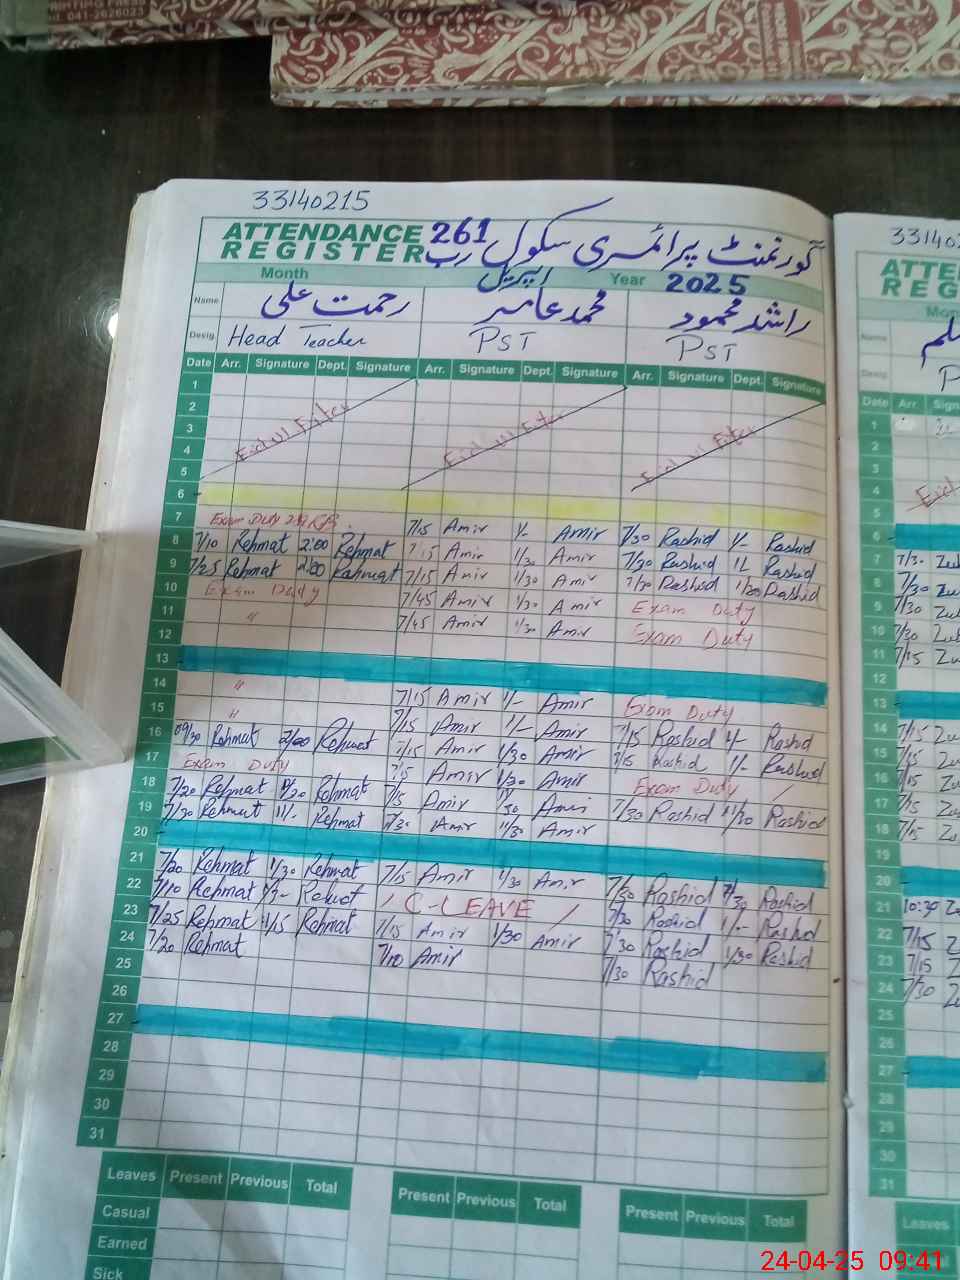 33140215
ATTENDANCE REGISTER 261 رب گورنمنٹ پرائمری سکول
Month اپریل Year 2025
Name رحمت علی محمد عامر راشد محمود
Desig. Head Teacher PST PST
Date Arr. Signature Dept. Signature Arr. Signature Dept. Signature Arr. Signature Dept. Signature
1
2
3
4
5
6
7 Exam Duty 7/15 Amir 1/- Amir 7/30 Rashid 1/- Rashid
8 7/10 Rehmat 2:00 Rehmat 7/15 Amir 1/30 Amir 7/30 Rashid Rashid
9 7/25 Rehmat 2:00 Rehmat 7/15 Amir 1/30 Amir 7/30 Rashid Rashid
10 Exam Duty 7/45 Amir 1/30 Amir Exam Duty
11 " 7/45 Amir 1/30 Amir Exam Duty
12
13
14 " 7/15 Amir 1/- Amir Exam Duty
15 " 7/15 Amir 1/- Amir 7/15 Rashid Rashid
16 Rehmat Rehmat 7/15 Amir 1/30 Amir 7/15 Rashid 1/- Rashid
17 Exam Duty 7/15 Amir 1/30 Amir Exam Duty
18 7/20 Rehmat Rehmat 7/15 Amir Amir 7/30 Rashid 11/30 Rashid
19 7/30 Rehmat 11/- Rehmat 7/30 Amir 11/30 Amir
20
21 7/20 Rehmat 1/30 Rehmat 7/15 Amir 1/30 Amir 7/30 Rashid Rashid
22 7/10 Rehmat Rehmat C-LEAVE 7/30 Rashid 1/- Rashid
23 7/25 Rehmat 1/15 Rehmat 7/15 Amir 1/30 Amir 7/30 Rashid 1/30 Rashid
24 7/20 Rehmat 7/10 Amir 7/30 Rashid
25
26
27
28
29
30
31
Leaves Present Previous Total Present Previous Total Present Previous Total
Casual
Earned
Sick
Name
Desig.
Date Arr.
1
2
3
4
5
6
7 7/30
8 7/30
9 7/30
10 7/30
11 7/15
12
13
14 7/15
15 7/15
16 7/15
17 7/15
18 7/15
19
20
21 10:30
22 7/15
23 7/15
24 7/30
25
26
27
28
29
30
31
Leaves
24-04-25 09:41